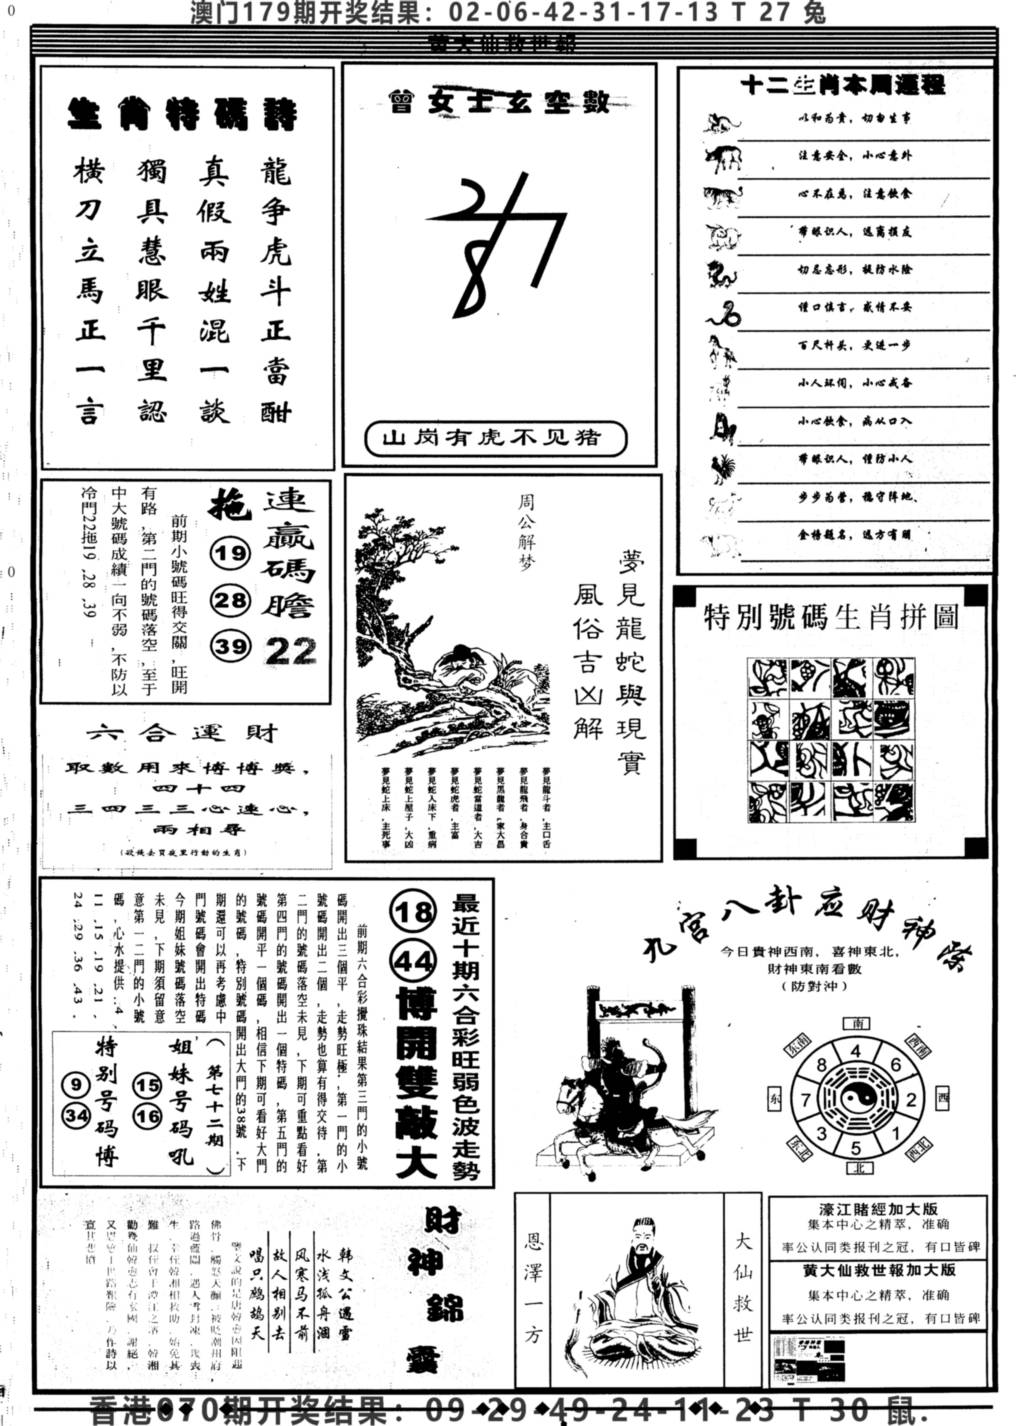 澳门179期开奖结果：02-06-42-31-17-13 T 27 兔
黄大仙救世報
生肖特碼詩
龍争虎斗正當酣
真假兩姓混一談
獨具慧眼千里認
橫刀立馬正一言
曾女士玄空數
山岗有虎不见猪
十二生肖本周運程
以和为貴，切勿生事
注意安全，小心意外
心不在焉，注意飲食
带眼识人，远离损友
切忌忘形，提防水险
谨口慎言，感情不安
百尺杆头，更进一步
小人环伺，小心戒备
小心飲食，病从口入
带眼识人，谨防小人
步步为营，稳守阵地、
金榜题名，远方有朋
連贏碼膽 22
拖 19 28 39
前期小號碼旺得交關，旺開
有路，第二門的號碼落空，至于
中大號碼成績一向不弱，不防以
冷門22拖19,28,39
六合運財
取數用來博博獎，
四十四
三四三三心連心，
兩相尋
(欲钱去買夜里行動的生肖)
周公解梦
夢見龍蛇與現實
風俗吉凶解
夢見龍斗者，主口舌
夢見龍飛者，身合貴
夢見黑龍者，家大昌
夢見蛇當道者，大吉
夢見蛇虎者，主富
夢見蛇入床下，重病
夢見蛇上屋子，大凶
夢見蛇上床，主死事
特別號碼生肖拼圖
最近十期六合彩旺弱色波走勢
18 44 博開雙敲大
前期六合彩攪珠結果第三門的小號
碼開出三個平，走勢旺極，第一門的小
號碼開出二個，走勢也算有得交待，第
二門的號碼落空未見，下期可重點看好
第四門的號碼開出一個特碼，第五門的
號碼開平一個碼，相信下期可看好大門
的號碼，特別號碼開出大門的38號，下
期還可以再考慮中
門號碼會開出特碼
今期姐妹號碼落空
未見，下期須留意
意第一二門的小號
碼，心水提供：4、
11.15.19.21.
24.29.36.43.
(第七十二期)
姐妹号码吼 15 16
特别号码博 9 34
九宫八卦应财神冧
今日貴神西南，喜神東北，
財神東南看數
(防對沖)
南
东南
西南
8
4
6
东
7
2
西
3
5
1
东北
北
西北
財神錦囊
韩文公遇雪
水浅孤舟涸
风寒马不前
故人相别去
唱只鹧鸪天
大仙救世
恩澤一方
濠江賭經加大版
集本中心之精萃，准确
率公认同类报刊之冠，有口皆碑
黄大仙救世報加大版
集本中心之精萃，准确
率公认同类报刊之冠，有口皆碑
香港070期开奖结果：09-29-49-24-11-23 T 30 鼠.